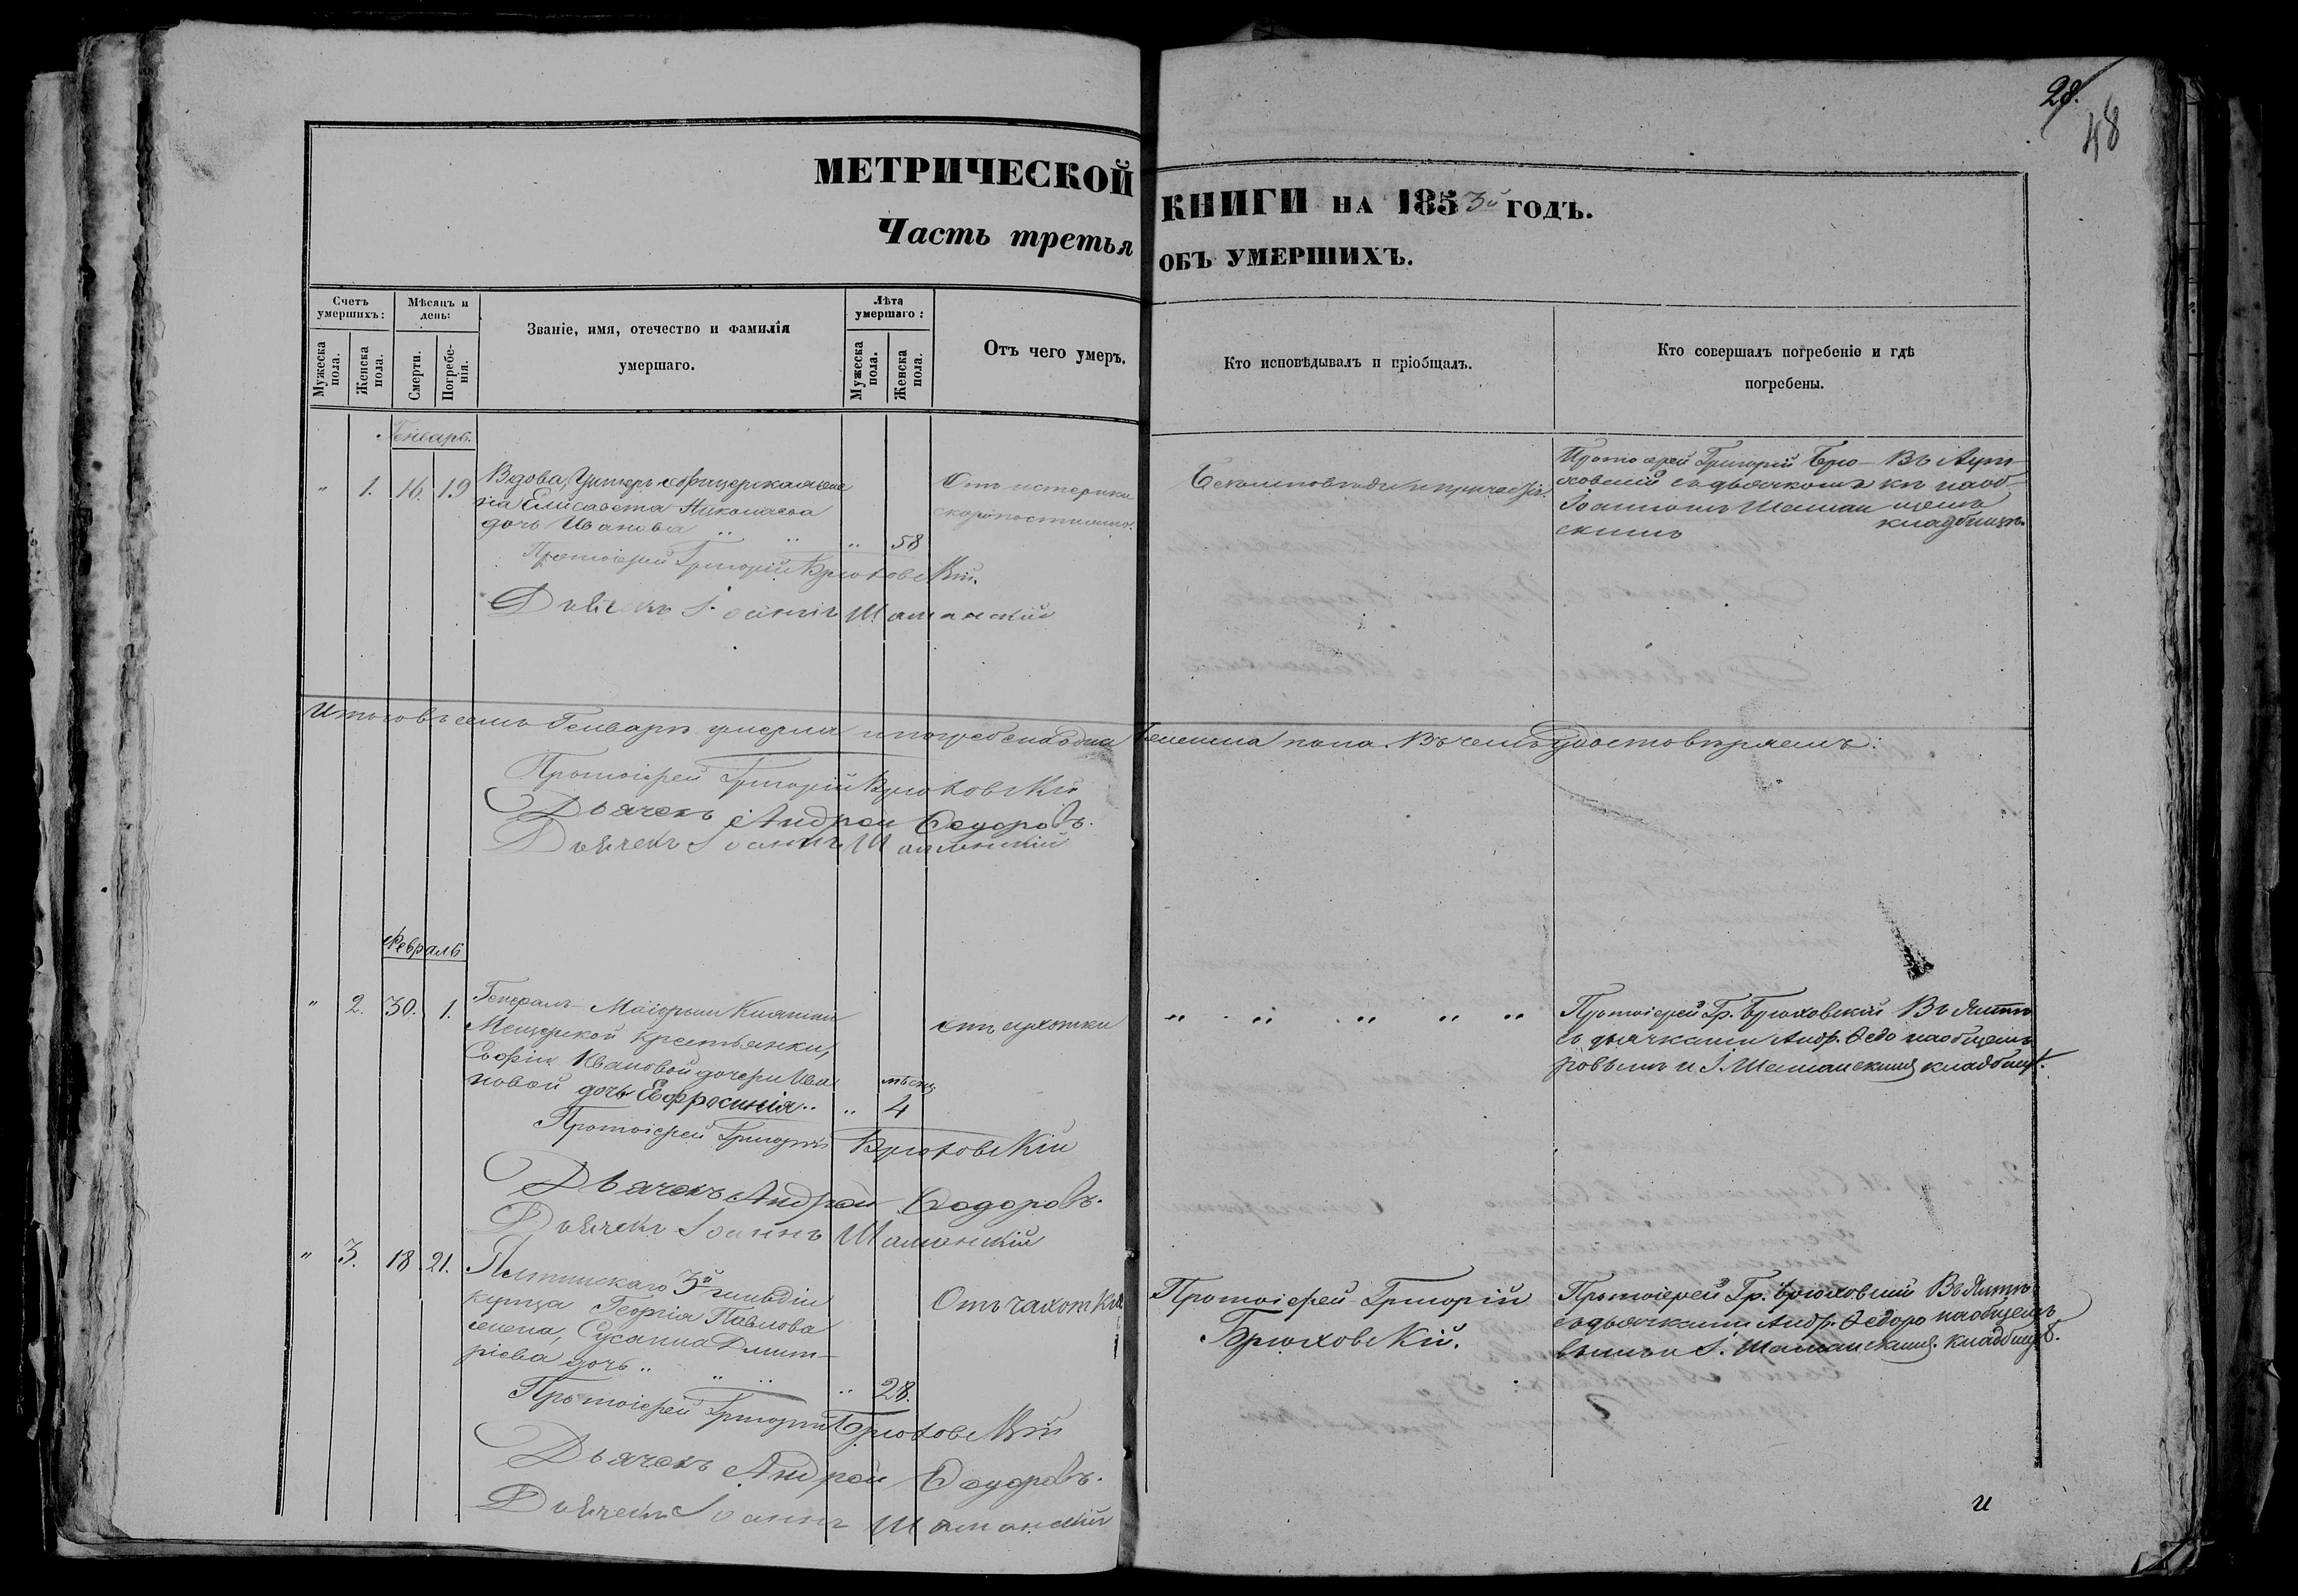 28.
48
МЕТРИЧЕСКОЙ КНИГИ НА 1853й ГОДЪ.
Часть третья ОБЪ УМЕРШИХЪ.
Счетъ умершихъ:
Мужеска пола.
Женска пола.
Мѣсяцъ и день:
Смерти.
Погребенія.
Званіе, имя, отечество и фамилія
умершаго.
Лѣта умершаго:
Мужеска пола.
Женска пола.
Отъ чего умеръ.
Кто исповѣдывалъ и пріобщалъ.
Кто совершалъ погребеніе и гдѣ
погребены.
Генварь.
" 1. 16. 19
Вдова, Унтеръ офицерская же
на Елисавета Николаева
дочь Иванова " " " 58
Отъ истерики
скоропостижно.
Безъ исповѣди и причастія.
Протоіерей Григорій Брю-
ховскій съ дьячкомъ
Іоанномъ Шеман
скимъ
Въ Аут
кѣ на об-
щемъ
кладбищѣ.
Протоіерей Григорій Брюховскій.
Дьячекъ Іоаннъ Шаманскій
Итого въ семъ Генварѣ умерла и погребена одна женска пола. Въ чемъ удостовѣряемъ:
Протоіерей Григорій Брюховскій
Дьячекъ Андрей Ѳедоровъ.
Дьячекъ Іоаннъ Шаманскій
Февраль
" 2. 30. 1.
Генералъ-Маіорши Княгини
Мещерской крестьянки,
Софіи Ивановой дочери Ива
новой дочь Евфросинія " "
мѣсяц
4
отъ сухотки
" " " " "
Протоіерей Гр. Брюховскій
съ дьячками Андр. Ѳедо
ровымъ и І. Шеманскимъ
Въ Ялтѣ
на общемъ
кладбищѣ.
Протоіерей Григорій Брюховскій
Дьячекъ Андрей Ѳедоровъ.
Дьячекъ Іоаннъ Шаманскій
" 3. 18 21.
Ялтинскаго 3й гильдіи
купца Георгія Павлова
жена, Сусанна Димит-
ріева дочь " " " " 28.
Отъ чахотки
Протоіерей Григорій
Брюховскій.
Протоіерей Гр. Брюховскій
съ дьячками Андр. Ѳедоро
вымъ и І. Шеманскимъ.
Въ Ялтѣ
на общемъ
кладбищѣ.
Протоіерей Григорій Брюховскій
Дьячекъ Андрей Ѳедоровъ.
Дьячекъ Іоаннъ Шаманскій
и